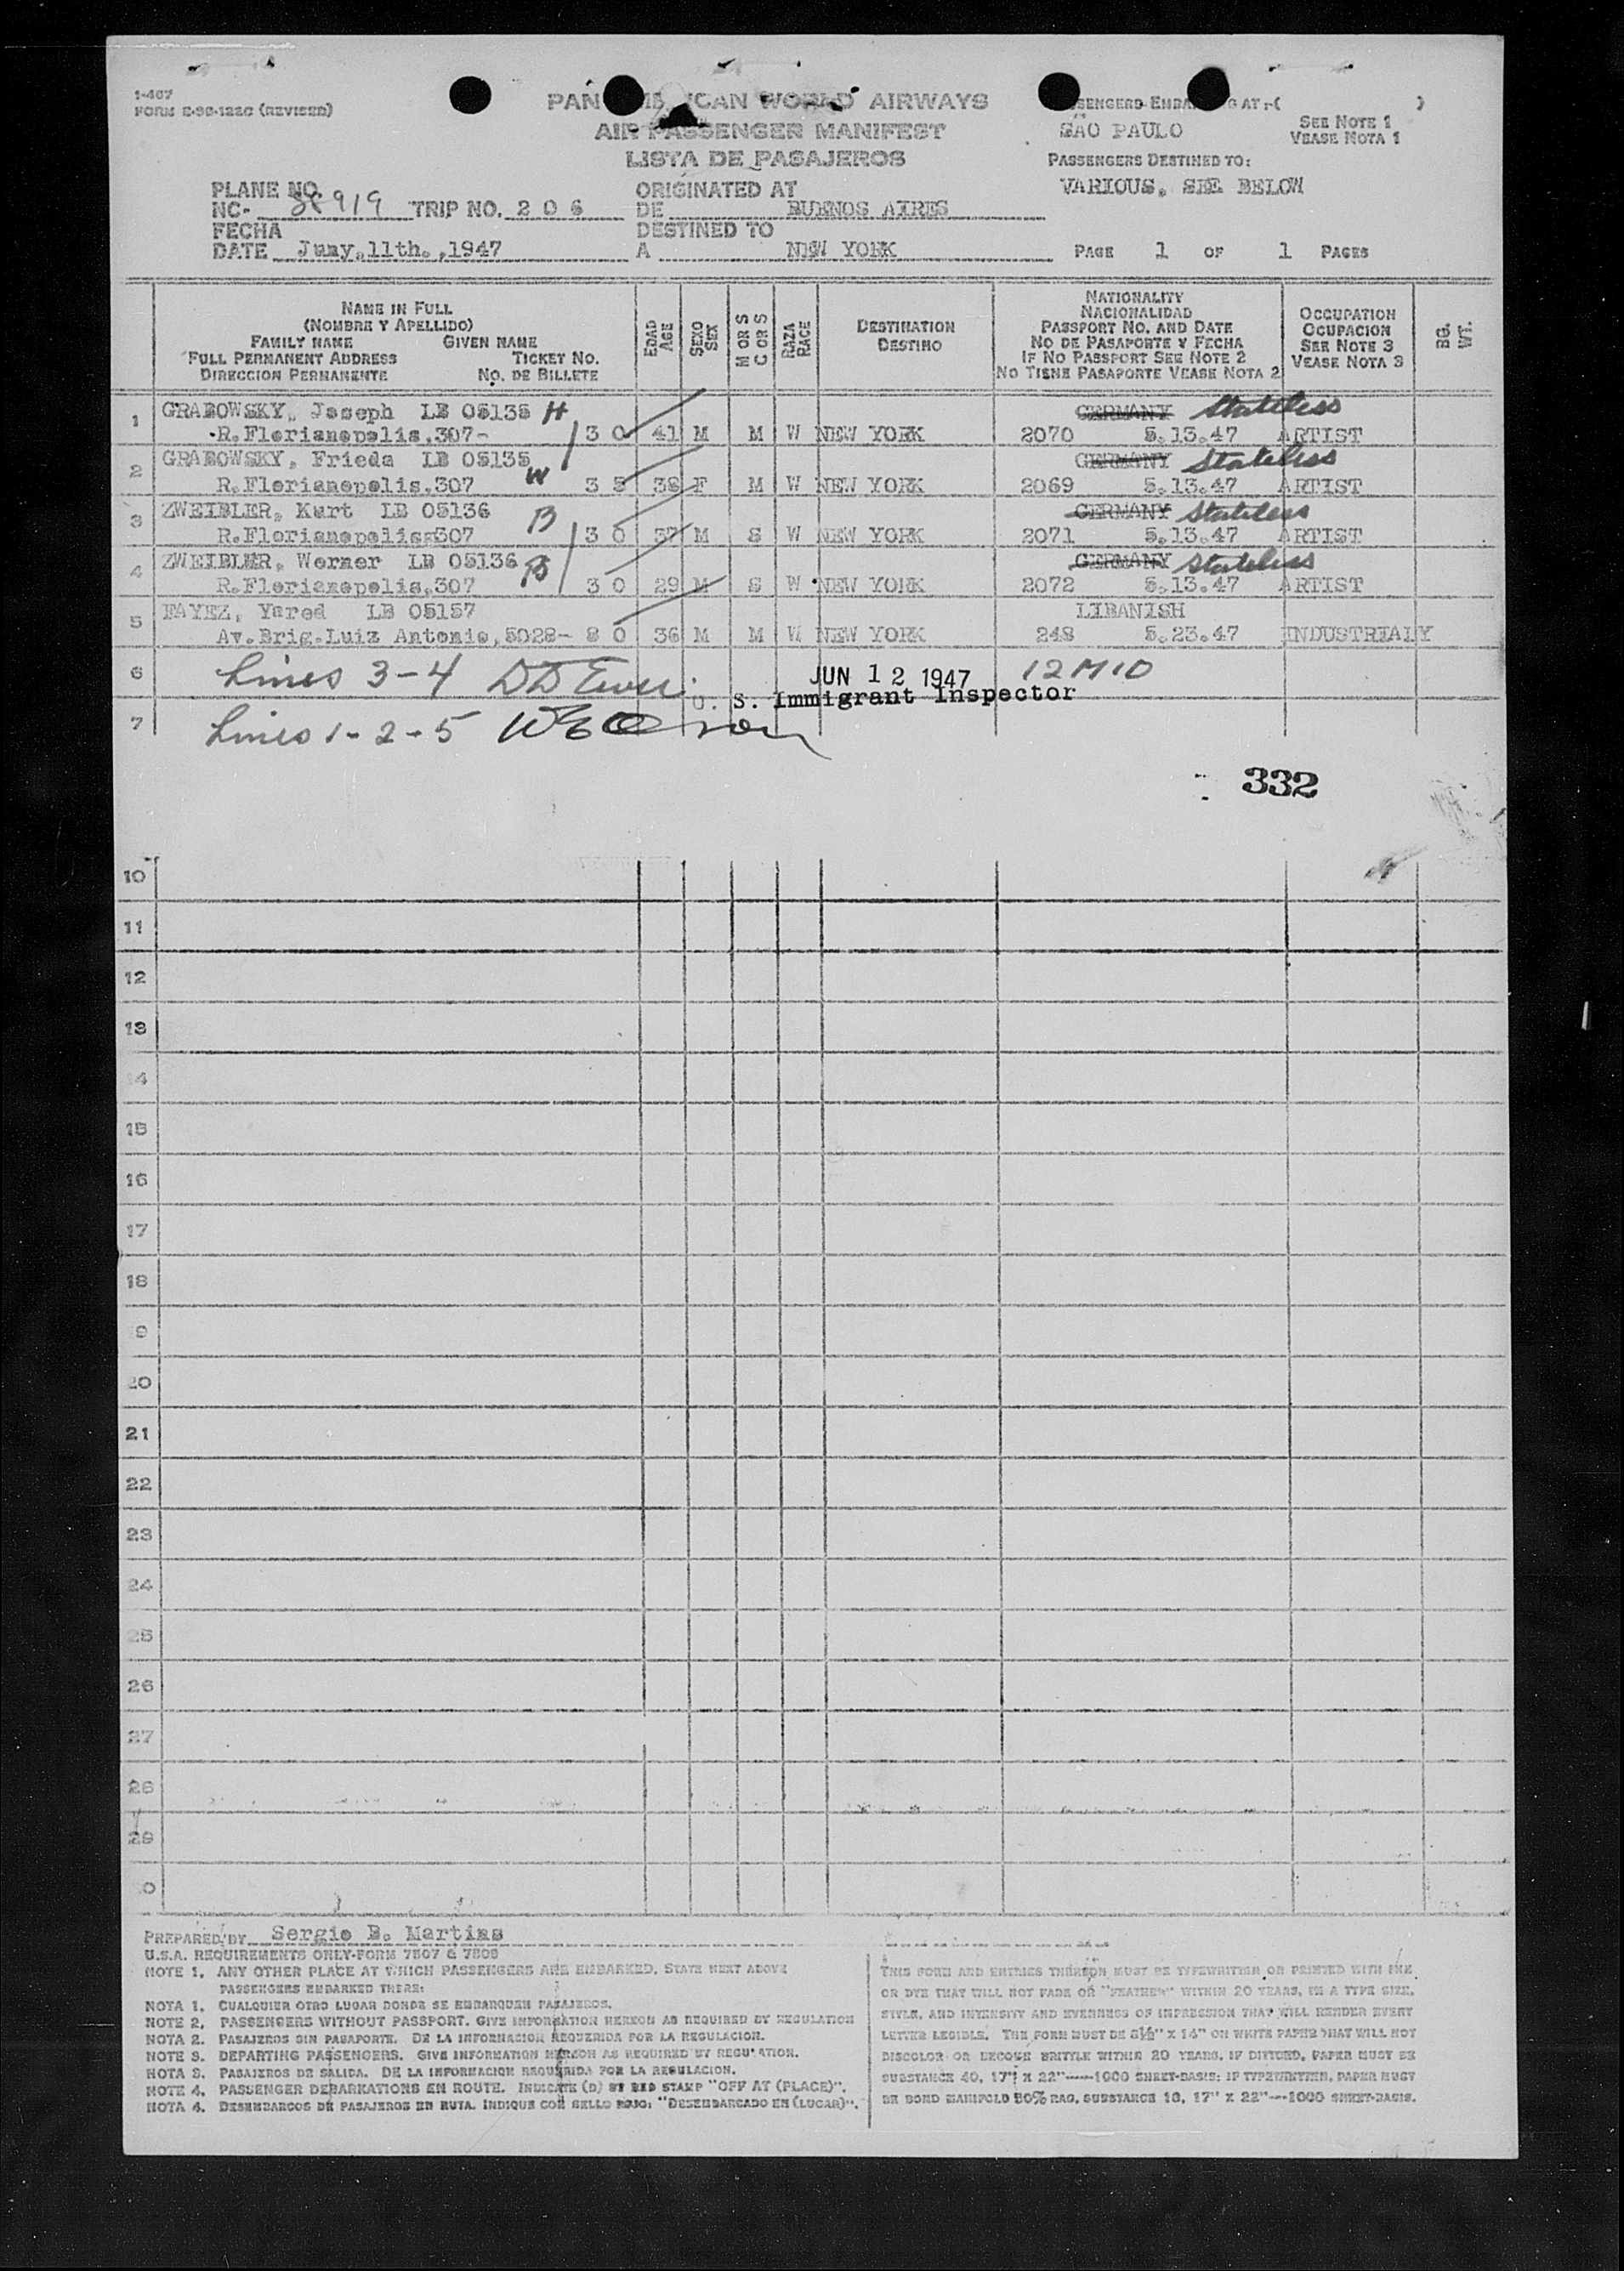 1-467
FORM E-96-122C (REVISED)
PAN AMERICAN WORLD AIRWAYS
AIR PASSENGER MANIFEST
LISTA DE PASAJEROS
PASSENGERS EMBARKING AT:-( )
SÃO PAULO
SEE NOTE 1
VEASE NOTA 1
PASSENGERS DESTINED TO:
VARIOUS, SEE BELOW
PLANE NO.
NC- 88919 TRIP NO. 2 0 6
ORIGINATED AT
DE BUENOS AIRES
FECHA
DATE Juny,11th.,1947
DESTINED TO
A NEW YORK
PAGE 1 OF 1 PAGES
NAME IN FULL
(NOMBRE Y APELLIDO)
FAMILY NAME GIVEN NAME
FULL PERMANENT ADDRESS TICKET NO.
DIRECCION PERMANENTE NO. DE BILLETE
EDAD
AGE
SEXO
SEX
M OR S
C OR S
RAZA
RACE
DESTINATION
DESTINO
NATIONALITY
NACIONALIDAD
PASSPORT NO. AND DATE
NO DE PASAPORTE Y FECHA
IF NO PASSPORT SEE NOTE 2
NO TIENE PASAPORTE VEASE NOTA 2
OCCUPATION
OCUPACION
SEE NOTE 3
VEASE NOTA 3
BG.
WT.
1 GRABOWSKY, Joseph LB 05135 H GERMANY Stateless
R.Florianopolis,307- 3 0 41 M M W NEW YORK 2070 5.13.47 ARTIST
2 GRABOWSKY, Frieda LB 05135 W GERMANY Stateless
R.Florianopolis,307 3 5 38 F M W NEW YORK 2069 5.13.47 ARTIST
3 ZWEIBLER, Kurt LB 05136 B GERMANY Stateless
R.Florianopolis,307 3 0 37 M S W NEW YORK 2071 5.13.47 ARTIST
4 ZWEIBLER, Werner LB 05136 B GERMANY Stateless
R.Florianopolis,307 3 0 29 M S W NEW YORK 2072 5.13.47 ARTIST
5 FAYEZ, Yared LB 05157 LIBANISH
Av.Brig.Luiz Antonio,5028- 8 0 36 M M W NEW YORK 248 5.23.47 INDUSTRIALY
6 Lines 3-4 JUN 12 1947 12 MID
U. S. Immigrant Inspector
7 Lines 1-2-5
332
10
11
12
13
14
15
16
17
18
9
20
21
22
23
24
25
26
27
28
29
0
PREPARED BY Sergio B. Martins
U.S.A. REQUIREMENTS ONLY-FORM 7507 & 7509
NOTE 1. ANY OTHER PLACE AT WHICH PASSENGERS ARE EMBARKED, STATE NEXT ABOVE
PASSENGERS EMBARKED THERE:
NOTA 1. CUALQUIER OTRO LUGAR DONDE SE EMBARQUEN PASAJEROS.
NOTE 2. PASSENGERS WITHOUT PASSPORT. GIVE INFORMATION HEREON AS REQUIRED BY REGULATION
NOTA 2. PASAJEROS SIN PASAPORTE. DE LA INFORMACION REQUERIDA POR LA REGULACION.
NOTE 3. DEPARTING PASSENGERS. GIVE INFORMATION HEREON AS REQUIRED BY REGULATION.
NOTA 3. PASAJEROS DE SALIDA. DE LA INFORMACION REQUERIDA POR LA REGULACION.
NOTE 4. PASSENGER DEBARKATIONS EN ROUTE. INDICATE (D) BY RED STAMP "OFF AT (PLACE)".
NOTA 4. DESEMBARCOS DE PASAJEROS EN RUTA. INDIQUE CON SELLO ROJO: "DESEMBARCADO EN (LUGAR)".
THIS FORM AND ENTRIES THEREON MUST BE TYPEWRITTEN OR PRINTED WITH INK
OR DYE THAT WILL NOT FADE OR "FEATHER" WITHIN 20 YEARS, IN A TYPE SIZE,
STYLE, AND INTENSITY AND EVENNESS OF IMPRESSION THAT WILL RENDER EVERY
LETTER LEGIBLE. THE FORM MUST BE 8½" X 14" ON WHITE PAPER THAT WILL NOT
DISCOLOR OR BECOME BRITTLE WITHIN 20 YEARS. IF DITTOED, PAPER MUST BE
SUBSTANCE 40, 17" X 22"-----1000 SHEET-BASIS; IF TYPEWRITTEN, PAPER MUST
BE BOND MANIFOLD 50% RAG, SUBSTANCE 18, 17" X 22"---1000 SHEET-BASIS.